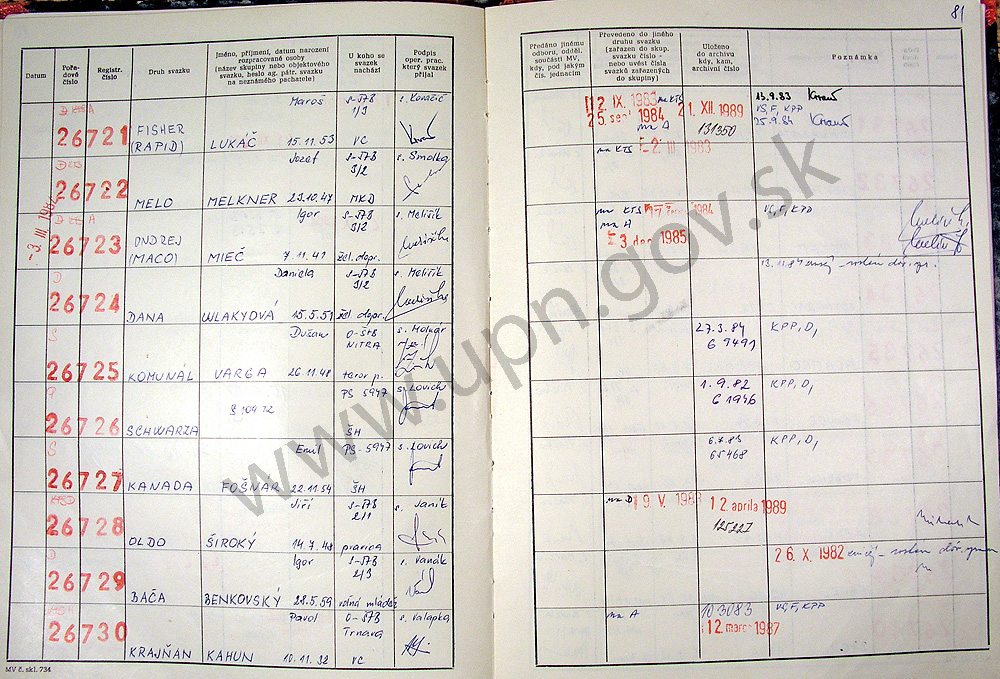 81
Datum
Pořadové číslo
Registr. číslo
Druh svazku
Jméno, příjmení, datum narození
rozpracované osoby
(název skupiny nebo objektového
svazku, heslo ag. pátr. svazku
na neznámého pachatele)
U koho se
svazek
nachází
Podpis
oper. prac.
který svazek
přijal
Předáno jinému
odboru, odděl.
součásti MV,
kdy, pod jakým
čís. jednacím
Převedeno do jiného
druhu svazku
(zařazen do skup.
svazku číslo -
nebo uvést čísla
svazků zařazených
do skupiny)
Uloženo
do archivu
kdy, kam,
archivní číslo
Poznámka
26721 FISHER (RAPID) LUKÁČ Maroš 15.11.53 S-ŠTB 1/3 VC s. Kovačič
12. IX. 1983 na KTS
25. sept 1984 na A
21. XII. 1989
131350
13.9.83
VS, F, KPP
25.9.84
26722 MELO MELKNER Jozef 23.10.47 S-ŠTB 3/2 MKD s. Smolka
na KTS 2. III. 1983
-3. III. 1982
26723 ONDREJ (MACO) MIEČ Igor 7.11.41 S-ŠTB 3/2 žel. dopr. s. Melišík
na KTS 1984
na A
3 dec 1985
VS, F, KPP
26724 DANA WLAKYOVÁ Daniela 15.5.51 S-ŠTB 3/2 žel. dopr. s. Melišík
26725 KOMUNÁL VARGA Dušan 26.11.48 O-ŠTB NITRA teror p. s. Molnár
27.3.84
69491
KPP, D,
26726 SCHWARZA § 109 TZ PS 5947 ŠH s. Lovich
1.9.82
61946
KPP, D,
26727 KANADA FOŠNAR Emil 22.11.54 PS-5947 ŠH s. Lovich
6.7.83
65468
KPP, D,
26728 OLDO ŠIROKÝ Jiří 14.7.48 S-ŠTB 2/1 pravica s. Janík
na D 9. V. 1983
12. apríla 1989
125227
26729 BAČA BENKOVSKÝ Igor 28.5.59 S-ŠTB 2/3 voľná mládež s. Vanák
26. X. 1982
26730 KRAJŇAN KAHUN Pavol 10.11.32 O-ŠTB Trnava VC s. Valapka
na A
103083
12. marca 1987
VS, F, KPP
MV č. skl. 734
www.upn.gov.sk